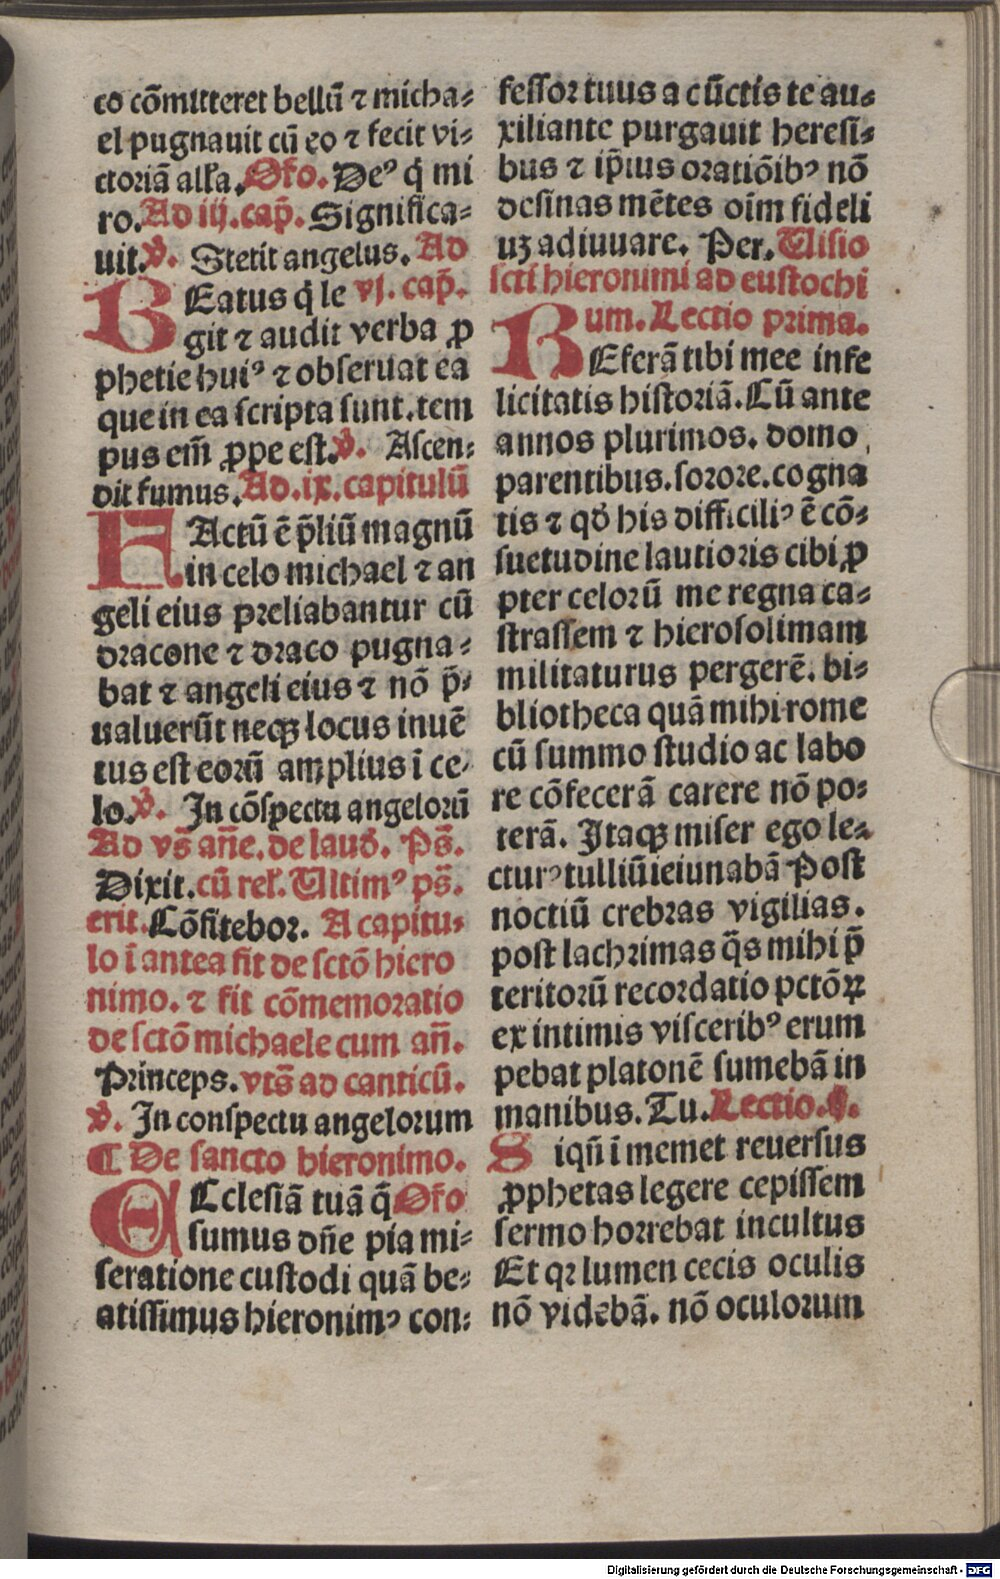 co cõmitteret bellũ ⁊ micha⸗
el pugnauit cũ eo ⁊ fecit vi⸗
ctoriã all'a. Or̃o. Deꝰ q̃ mi
ro. Ad iij. cap̃. Significa⸗
uit. ℣. Stetit angelus. Ad
BEatus q̃ le vj. cap̃.
git ⁊ audit verba ꝓ
phetie huiꝰ ⁊ obseruat ea
que in ea scripta sunt. tem
pus em̃ ꝓpe est. ℣. Ascen⸗
dit fumus. Ad. ix. capitulũ
FActũ ẽ p̃liũ magnũ
in celo michael ⁊ an
geli eius preliabantur cũ
dracone ⁊ draco pugna⸗
bat ⁊ angeli eius ⁊ nõ p̃⸗
ualuerũt neqꝫ locus inuẽ
tus est eorũ amplius ĩ ce⸗
lo. ℣. In cõspectu angelorũ
Ad vs̃ añe. de laud̕. Ps̃.
Dixit. cũ rel'. Vltimꝰ ps̃.
erit. Cõfitebor. A capitu⸗
lo ĩ antea fit de sctõ hiero
nimo. ⁊ fit cõmemoratio
de sctõ michaele cum añ.
Princeps. vts̃ ad canticũ.
℣. In conspectu angelorum
¶ De sancto hieronimo.
ECclesiã tuã q̃ Or̃o
sumus dñe pia mi⸗
seratione custodi quã be⸗
atissimus hieronimꝰ con⸗
fessor tuus a cũctis te au⸗
xiliante purgauit heresi⸗
bus ⁊ ip̃ius oratiõibꝰ nõ
desinas mẽtes oĩm fideli
uꝫ adiuuare. Per. Visio
scti hieronimi ad eustochi
um. Lectio prima.
REferã tibi mee infe
licitatis historiã. Cũ ante
annos plurimos. domo
parentibus. sorore. cogna
tis ⁊ qd̕ his difficiliꝰ ẽ cõ⸗
suetudine lautioris cibi ꝓ
pter celorũ me regna ca⸗
strassem ⁊ hierosolimam
militaturus pergerẽ. bi⸗
bliotheca quã mihi rome
cũ summo studio ac labo
re cõfecerã carere nõ po⸗
terã. Itaqꝫ miser ego le⸗
cturꝰ tulliũ ieiunabã Post
noctiũ crebras vigilias.
post lachrimas q̃s mihi p̃
teritorũ recordatio pctõꝝ
ex intimis visceribꝰ erum
pebat platonẽ sumebã in
manibus. Tu. Lectio.
Siqñ ĩ memet reuersus
ꝓphetas legere cepissem
sermo horrebat incultus
Et qꝛ lumen cecis oculis
nõ videbã. nõ oculorum
Digitalisierung gefördert durch die Deutsche Forschungsgemeinschaft - DFG